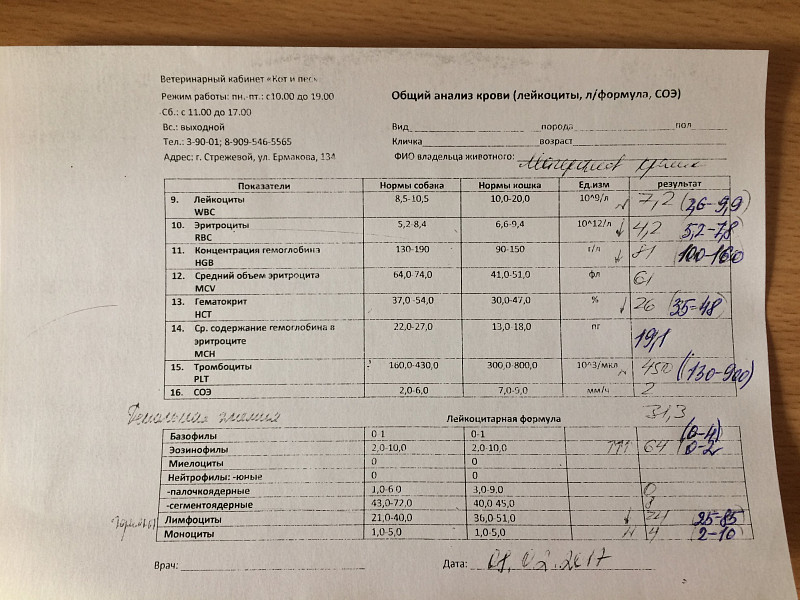 Ветеринарный кабинет «Кот и пес»
Режим работы: пн.-пт.: с10.00 до 19.00
Сб.: с 11.00 до 17.00
Вс.: выходной
Тел.: 3-90-01; 8-909-546-5565
Адрес: г. Стрежевой, ул. Ермакова, 134
Общий анализ крови (лейкоциты, л/формула, СОЭ)
Вид порода пол
Кличка возраст
ФИО владельца животного:
Показатели Нормы собака Нормы кошка Ед.изм результат
9. Лейкоциты 8,5-10,5 10,0-20,0 10^9/л 7,2 (3,6-9,9)
WBC
10. Эритроциты 5,2-8,4 6,6-9,4 10^12/л ↓ 4,2 5,2-7,8
RBC
11. Концентрация гемоглобина 130-190 90-150 г/л ↓ 81 (100-160)
HGB
12. Средний объем эритроцита 64,0-74,0 41,0-51,0 фл 61
MCV
13. Гематокрит 37,0-54,0 30,0-47,0 % ↓ 26 (35-48)
HCT
14. Ср. содержание гемоглобина в 22,0-27,0 13,0-18,0 пг 19,1
эритроците
MCH
15. Тромбоциты 160,0-430,0 300,0-800,0 10^3/мкл 450 (130-900)
PLT
16. СОЭ 2,0-6,0 7,0-9,0 мм/ч 2
31,3
анемия Лейкоцитарная формула
Базофилы 0-1 0-1 (0-4)
Эозинофилы 2,0-10,0 2,0-10,0 ↑↑↑ 64 0-2
Миелоциты 0 0
Нейтрофилы: -юные 0 0
-палочкоядерные 1,0-6,0 3,0-9,0 0
-сегментоядерные 43,0-72,0 40,0-45,0 8
Лимфоциты 21,0-40,0 36,0-51,0 ↓ 24 25-85
Моноциты 1,0-5,0 1,0-5,0 4 (2-10)
Врач: Дата: 08.02.2017